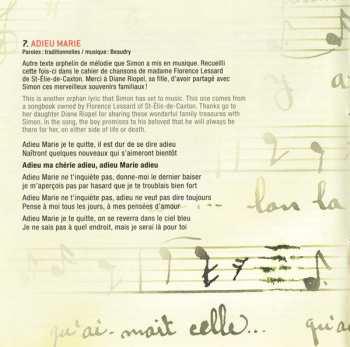 7. ADIEU MARIE
Paroles : traditionnelles / musique : Beaudry
Autre texte orphelin de mélodie que Simon a mis en musique. Recueilli
cette fois-ci dans le cahier de chansons de madame Florence Lessard
de St-Élie-de-Caxton. Merci à Diane Riopel, sa fille, d'avoir partagé avec
Simon ces merveilleux souvenirs familiaux !
This is another orphan lyric that Simon has set to music. This one comes from
a songbook owned by Florence Lessard of St-Élie-de-Caxton. Thanks go to
her daughter Diane Riopel for sharing these wonderful family treasures with
Simon. In the song, the boy promises to his beloved that he will always be
there for her, on either side of life or death.
Adieu Marie je te quitte, il est dur de se dire adieu
Naîtront quelques nouveaux qui s'aimeront bientôt
Adieu ma chérie adieu, adieu Marie adieu
Adieu Marie ne t'inquiète pas, donne-moi le dernier baiser
je m'aperçois pas par hasard que je te troublais bien fort
Adieu Marie ne t'inquiète pas, adieu ne veut pas dire toujours
Pense à moi tous les jours, à mes pensées d'amour
Adieu Marie je te quitte, on se reverra dans le ciel bleu
Je ne sais pas à quel endroit, mais je serai là pour toi
lon la
qu'ai-mait celle...
qu'a